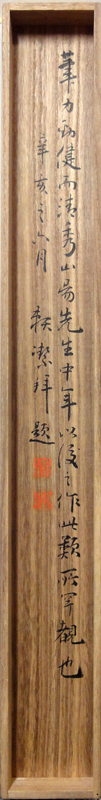 筆力勁健而清秀山陽先生中年以後之作此類所罕覯也
辛亥之六月　頼潔拝題